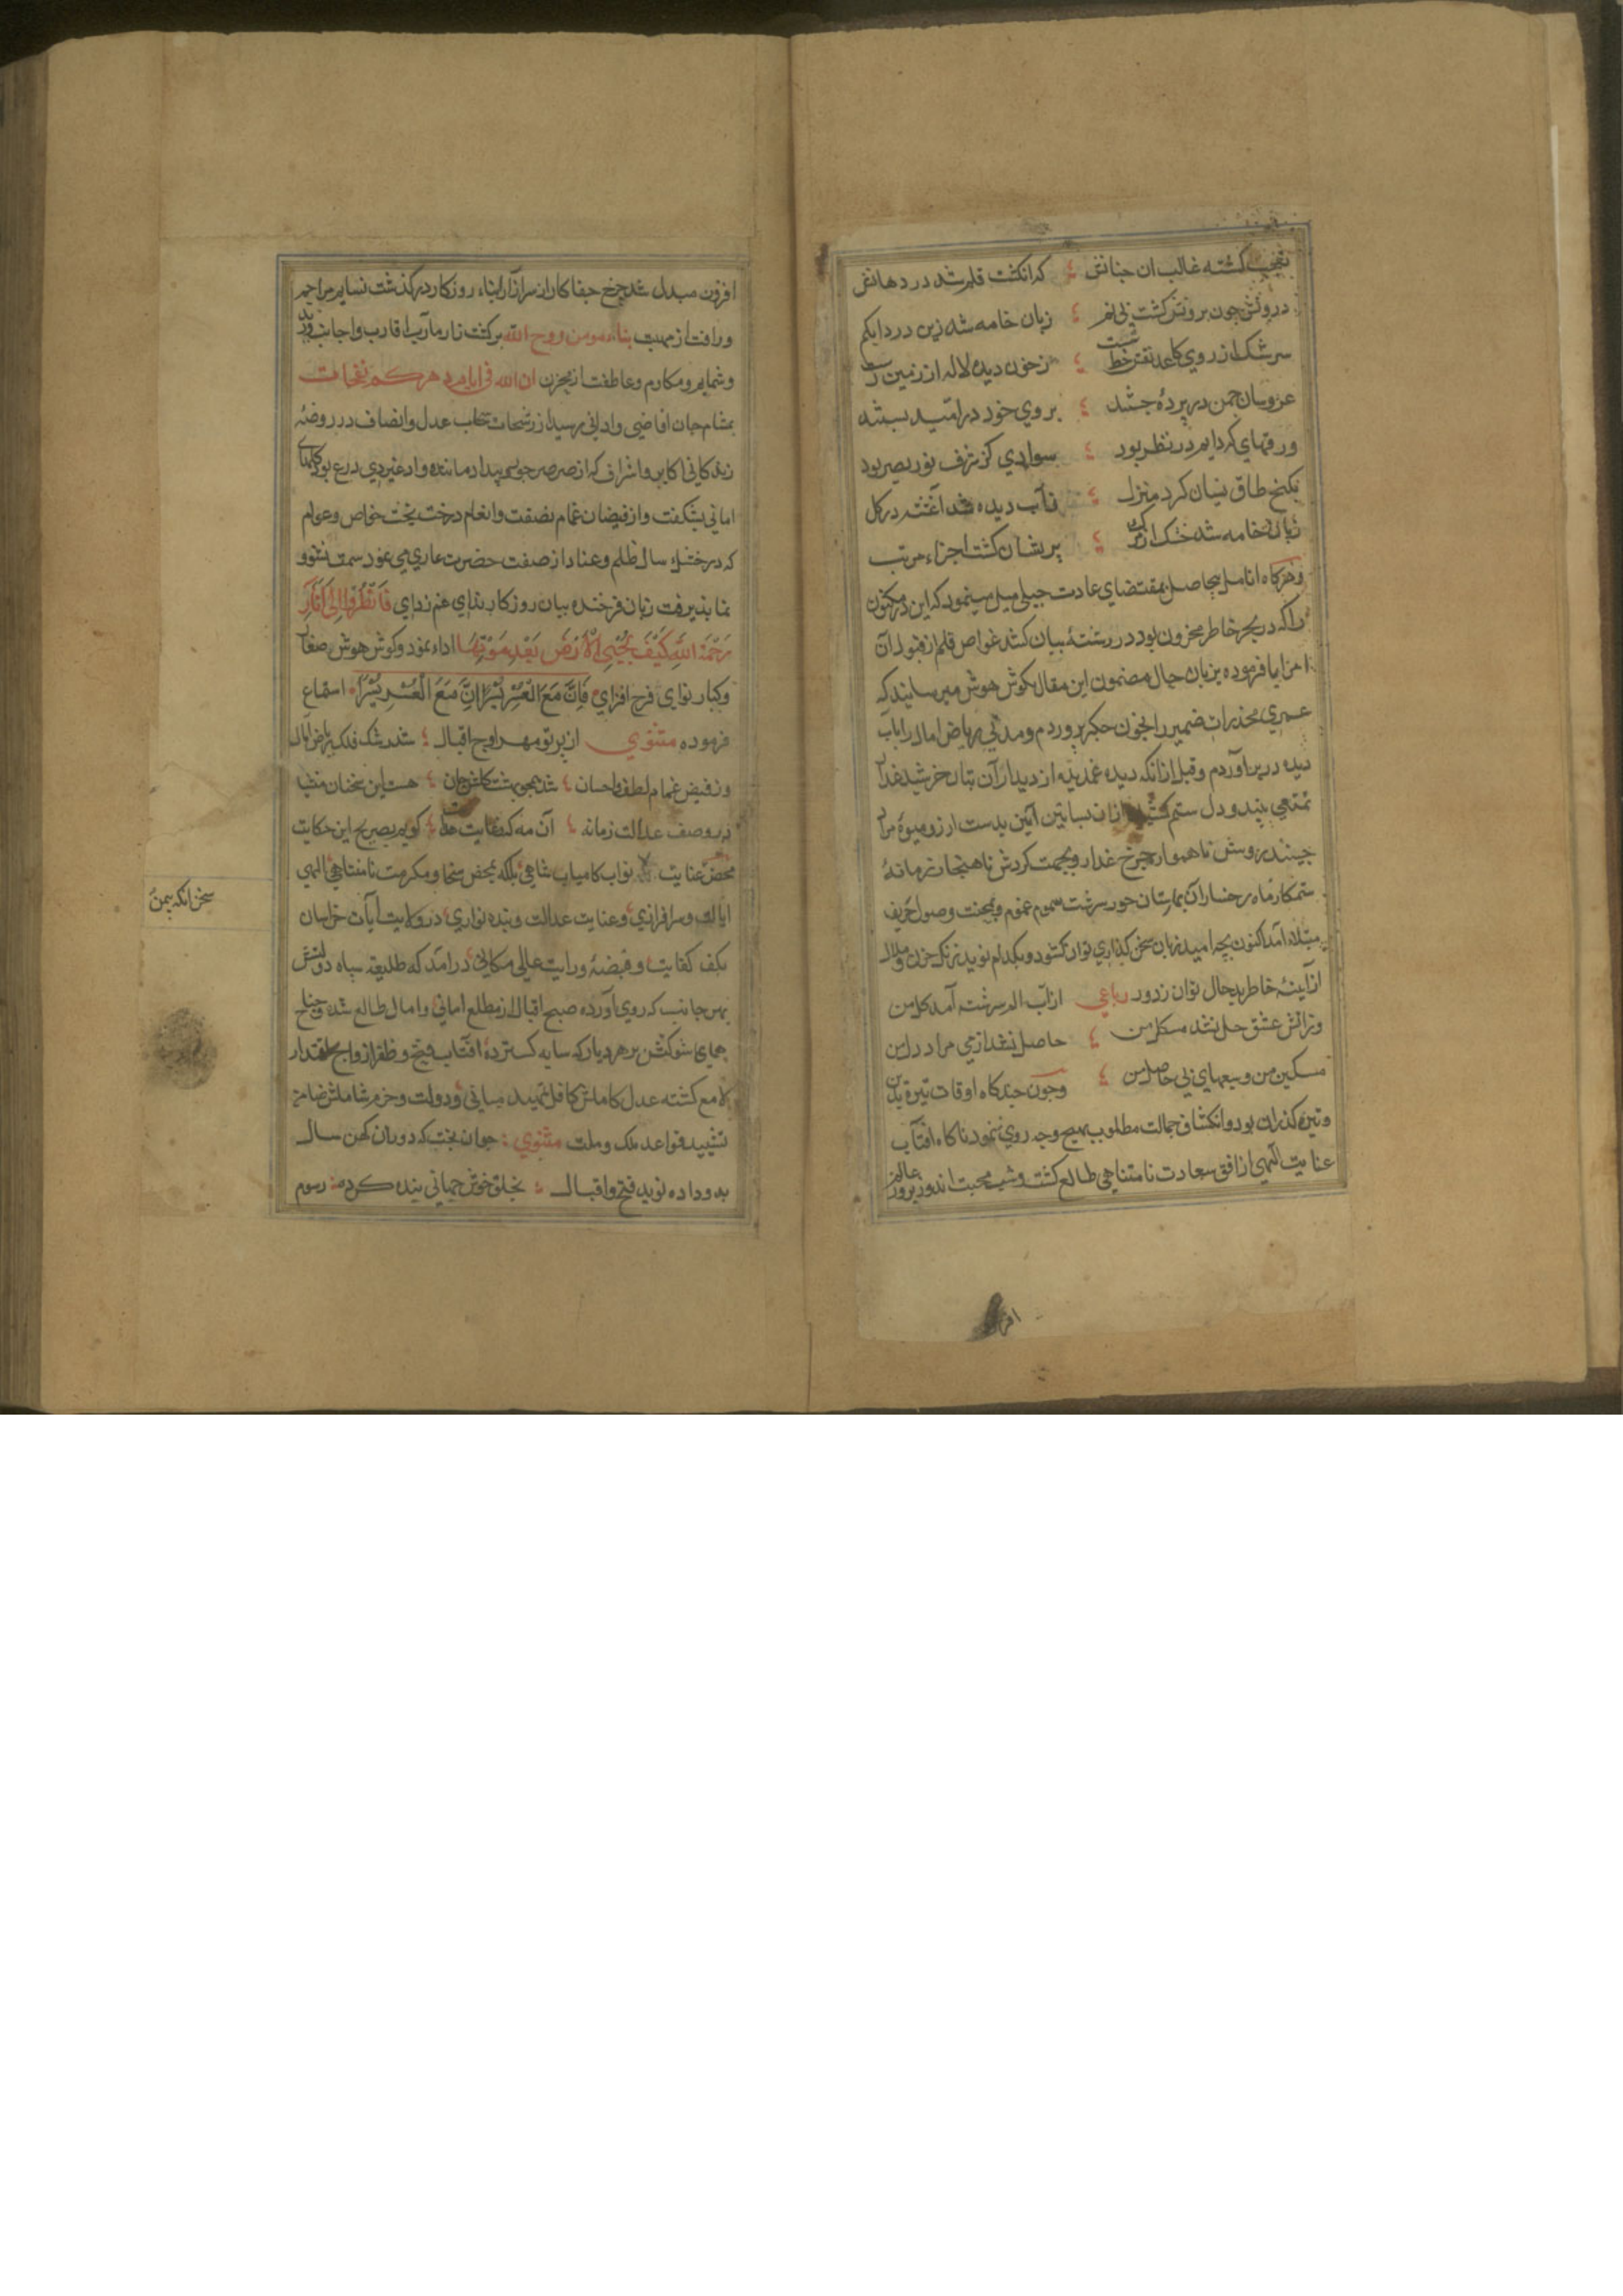 تعجب کشته غالب ان جنانش که انکشت قلم شد در دهانش
درونش چون برونش کشت بی نم زبان خامه شد زین درد ابکم
سرشک از روی کاغذ نقش خط شست ز خون دیده لاله از زمین رست
عروسان چمن در پرده جسته بروی خود در امید بسته
ورقهای که دایم در نظر بود سوادی کز شرف نور بصر بود
بکنج طاق نسیان کرد منزل ز آب دیده شد آغشته در کل
زبان خامه شد خشک از پریشان کشت اجزاء مرتب
وهرکاه انامل بیحاصل بمقتضای عادت جبلی میل مینمود که این در مکنون
راکه در بحر خاطر مخزون بود در رشته بیان کشد غواص قلم از قبول آن
ابا فرموده بزبان حال مضمون این مقال بکوش هوش میرسانید که
عمری مخدرات ضمیر را بخون جکر پروردم ومدتی ریاض امال را باب
دیده در بر آوردم وقبل ازانکه دیده غمدیده از دیدار آن بتان خرشید
تمتعی بیند و دل ستم از ان بساتین بدست ارزو میوه مراد
چیند بروش ناهموار چرخ غدار وبجهت کردش ناهنجار زمانه
ستمکار ماه رخساران حور سرشت بسموم غموم وصول خریف
مبتلا امد اکنون بچه امید زبان سخن کذاری توان کشود وبکدام نوید زنک حزن وملال
از آینه خاطر بدحال توان زدود رباعی از آب الم سرشته آمد کل من
وز اتش عشق حل نشد مشکل من حاصل نشد از می مراد دل من
مسکین من وسعیهای بی حاصل من وچون چندکاه اوقات تیره بدین
وتیره کذران بود وانکشاف جمالت مطلوب بهیچ وجه روی ننمود ناکاه افتاب
عنایت الهی از افق سعادت نامتناهی طالع کشت وشب محبت اندوز بروز عالم
افروز
افروزن مبدل شد چرخ جفاکار از سر آزار ابناء روزکار در کذشت نسایم مراحم
ورافت از مهب بناء مومن روح الله برکشت زار مآرب اقارب واجانب وزید
وشمایم ومکارم وعاطفت از مخزن ان الله فی ایام دهرکم نفحات
بمشام جان اقاضی وادانی رسید از رشحات سحاب عدل وانصاف در روضه
زندکانی اکابر واشراف که از صرصر جور بیداد مانند واد غیر ذی زرع بود کلهای
امانی بشکفت واز فیضان غمام نصفت وانعام درخت بخت خواص وعوام
که در خشک سال ظلم وعناد از صفت خضرت عاری می نمود سمت نشو و
نما پذیرفت زبان فرخنده بیان روزکار بندای غم زدای فَانْظُرْ اِلَی آثَارِ
رَحْمَةِ اللّٰهِ کَیْفَ یُحْیِی الْاَرْضَ بَعْدَ مَوْتِهَا اداء نمود وکوش هوش صغار
وکبار نوای فرح افزای فَاِنَّ مَعَ الْعُسْرِ یُسْرًا اِنَّ مَعَ الْعُسْرِ یُسْرًا استماع
فرموده مثنوی از پرتو مهر اوج اقبال شد رشک فلک ریاض آمال
وز فیض غمام لطف واحسان شد همچو بهشت کلشن جان هست این سخنان
در وصف عدالت زمانه آن مه که کویم بصریح این حکایت
محض عنایت نواب کامیاب شاهی بلکه بمحض سخا ومکرمت نامتناهی الهی
ایالت وسرافرازی وعنایت عدالت وبنده نوازی در ولایت آیات خراسان
بکف کفایت وقبضه ورایت عالی مکانی در آمد که طلیعه سپاه دولتش
بهر جانب که روی آورده صبح اقبال از مطلع امانی وامال طالع شده وجناح
همای شوکتش بر هر دیار که سایه کسترده افتاب فتح وظفر از اوج اقتدار
لامع کشته عدل کاملش کافل تمهید مبانی ودولت وحزم شاملش ضامن
تشیید قواعد ملک وملت مثنوی جوان بخت که دوران کهن سال
بدو داده نوید فتح واقبال بخلق خوش جهانی بنده کرده رسوم
سخن انکه بیمن